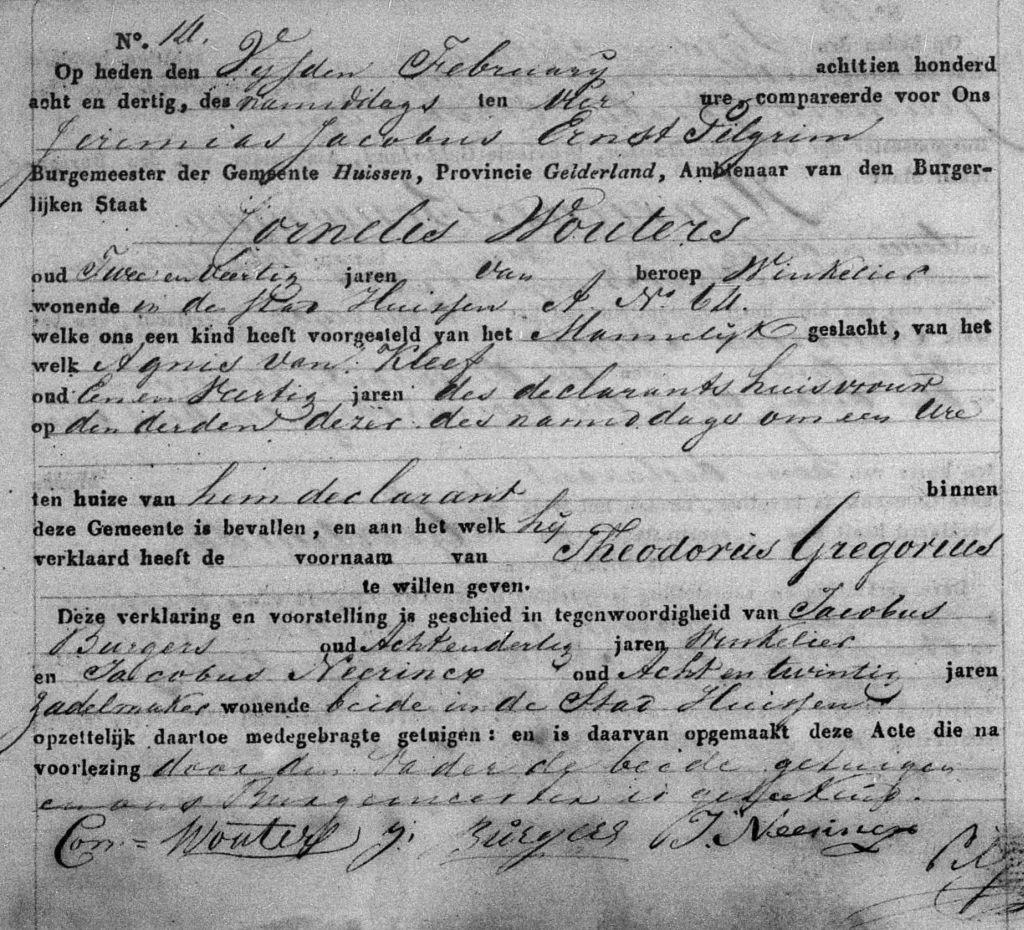 N°. 14.
Op heden den Vyfden February achttien honderd
acht en dertig, des namiddags ten vier ure, compareerde voor Ons
Jeremias Jacobus Ernst Pilgrim
Burgemeester der Gemeente Huissen, Provincie Gelderland, Ambtenaar van den Burger-
lijken Staat
Cornelis Wouters
oud Twee en Veertig jaren, van beroep Winkelier
wonende in de stad Huissen A No 64.
welke ons een kind heeft voorgesteld van het Mannelijk geslacht, van het
welk Agnis van Kleef
oud Een en Veertig jaren des declarants huisvrouw
op den derden dezer des namiddags om een Ure
ten huize van hem declarant binnen
deze Gemeente is bevallen, en aan het welk hij
verklaard heeft de voornaam van Theodorus Gregorius
te willen geven.
Deze verklaring en voorstelling is geschied in tegenwoordigheid van Jacobus
Burgers oud Achtendertig jaren Winkelier
en Jacobus Neerincx oud Acht en twintig jaren
Zadelmaker wonende beide in de Stad Huissen
opzettelijk daartoe medegebragte getuigen: en is daarvan opgemaakt deze Acte die na
voorlezing door den Vader de beide getuigen
en ons Burgemeester is getekend.
Corn = Wouters J. Burgers J. Neerincx